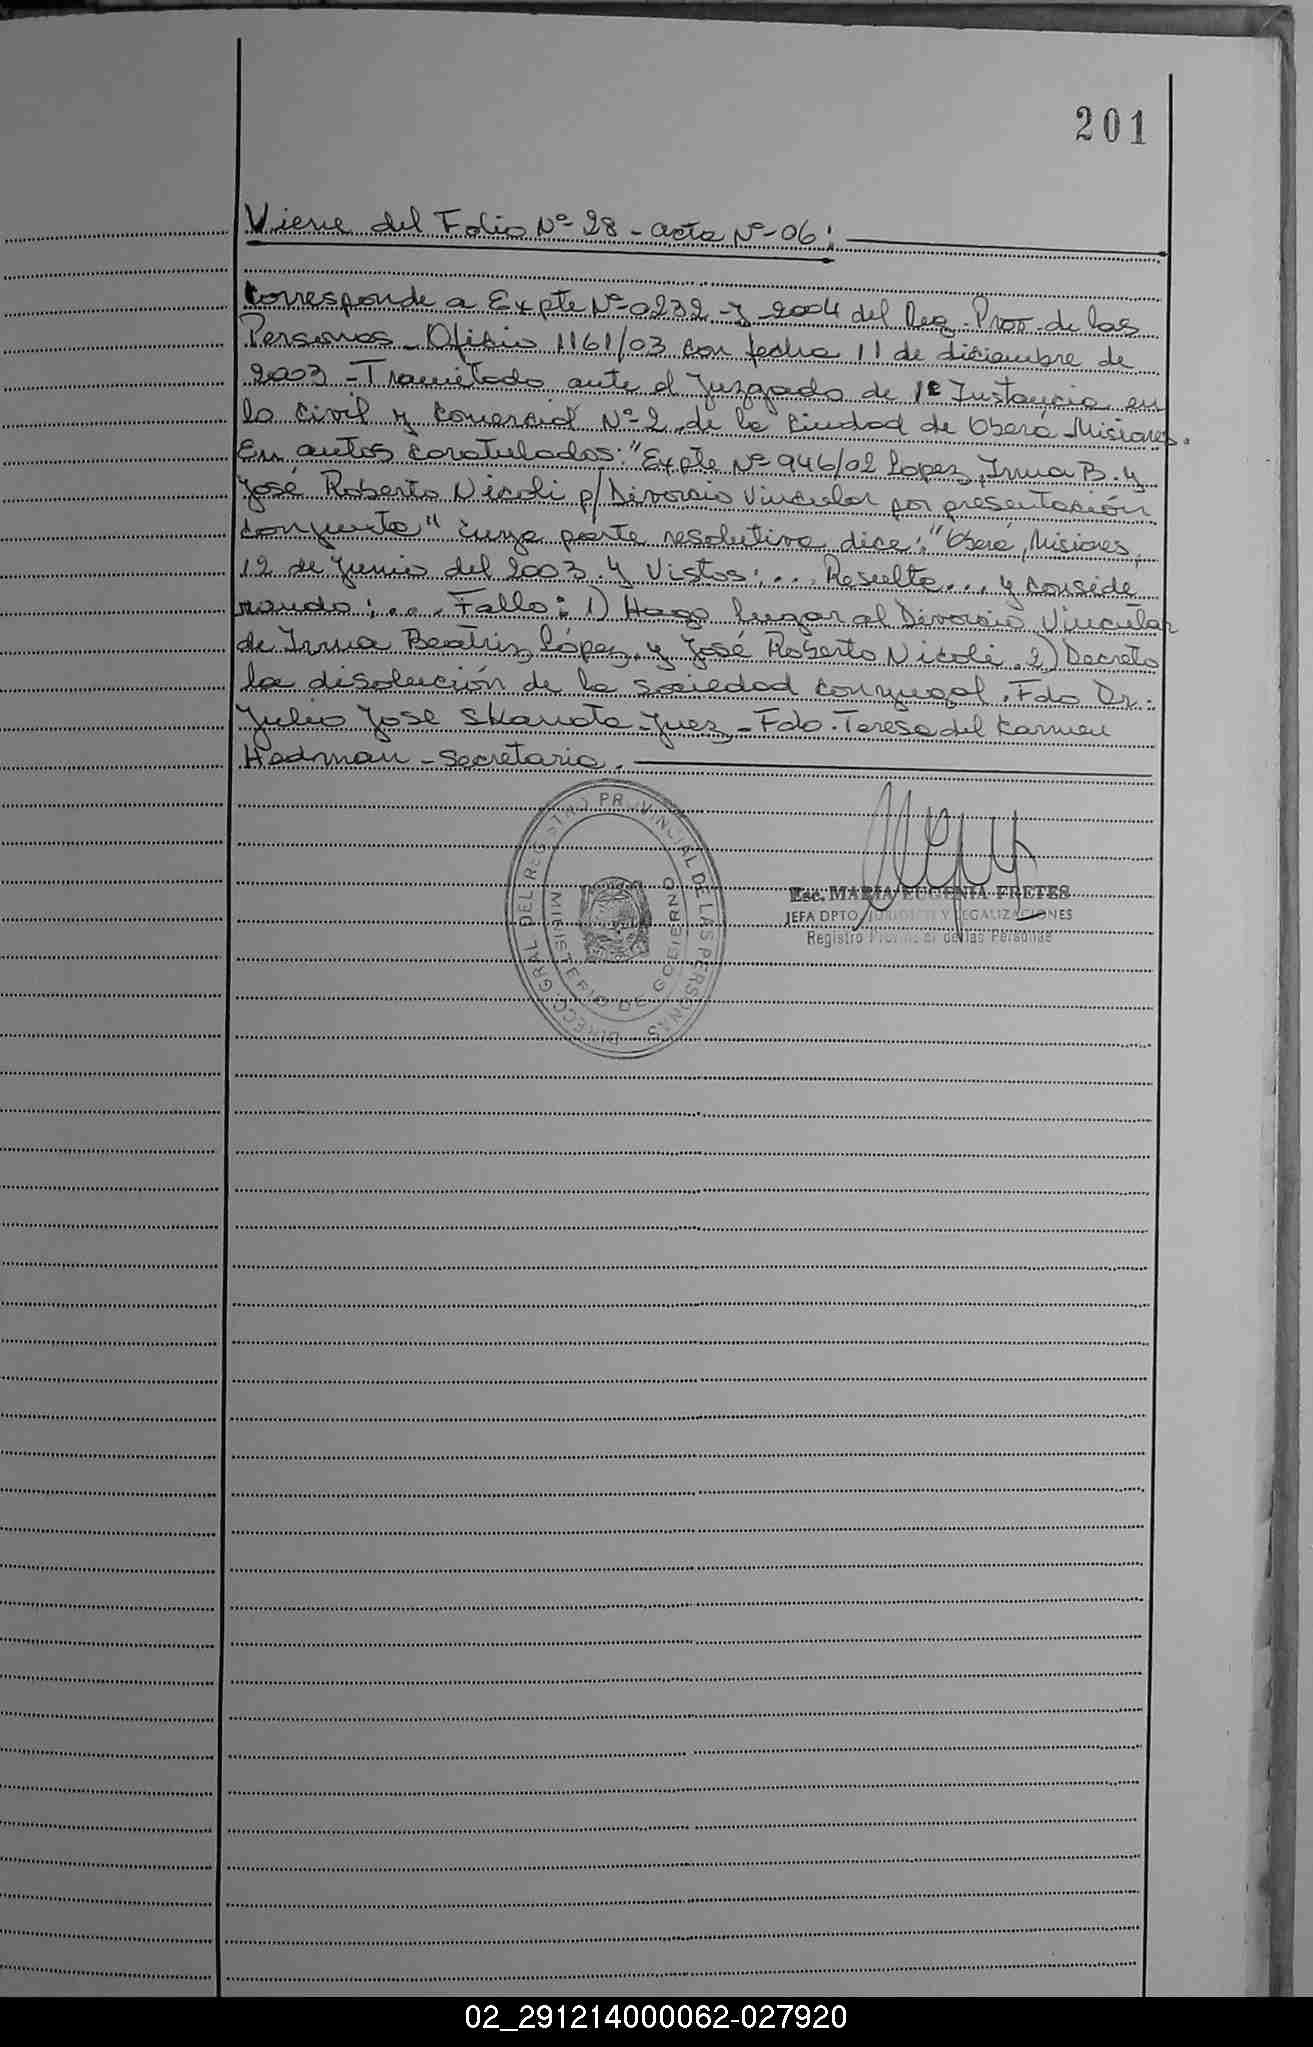 201
Viene del Folio Nº 28 - acta Nº 06:
Corresponde a Expte Nº 0232 - J - 2004 del Reg. Prov. de las
Personas - Oficio 1161/03 con fecha 11 de diciembre de
2003 - Tramitado ante el Juzgado de 1º Instancia en
lo Civil y Comercial Nº 2 de la Ciudad de Oberá Misiones.
En autos caratulados: "Expte Nº 946/02 Lopez, Irma B. y
José Roberto Nicoli p/ Divorcio Vincular por presentación
conjunta" cuya parte resolutiva dice: "Oberá, Misiones,
12 de Junio del 2003. Y Vistos: ... Resulta ... y conside
rando: ... Fallo: 1) Hago lugar al Divorcio Vincular
de Irma Beatriz López y José Roberto Nicoli. 2) Decreto
la disolución de la sociedad conyugal. Fdo Dr.
Julio José Skanata Juez - Fdo. Teresa del Carmen
Hedman - Secretaria.
DIRECC. GRAL. DEL REGISTRO PROVINCIAL DE LAS PERSONAS
MINISTERIO DE GOBIERNO
Esc. MARIA EUGENIA FRETES
JEFA DPTO. JURIDICO Y LEGALIZACIONES
Registro Provincial de las Personas
02_291214000062-027920